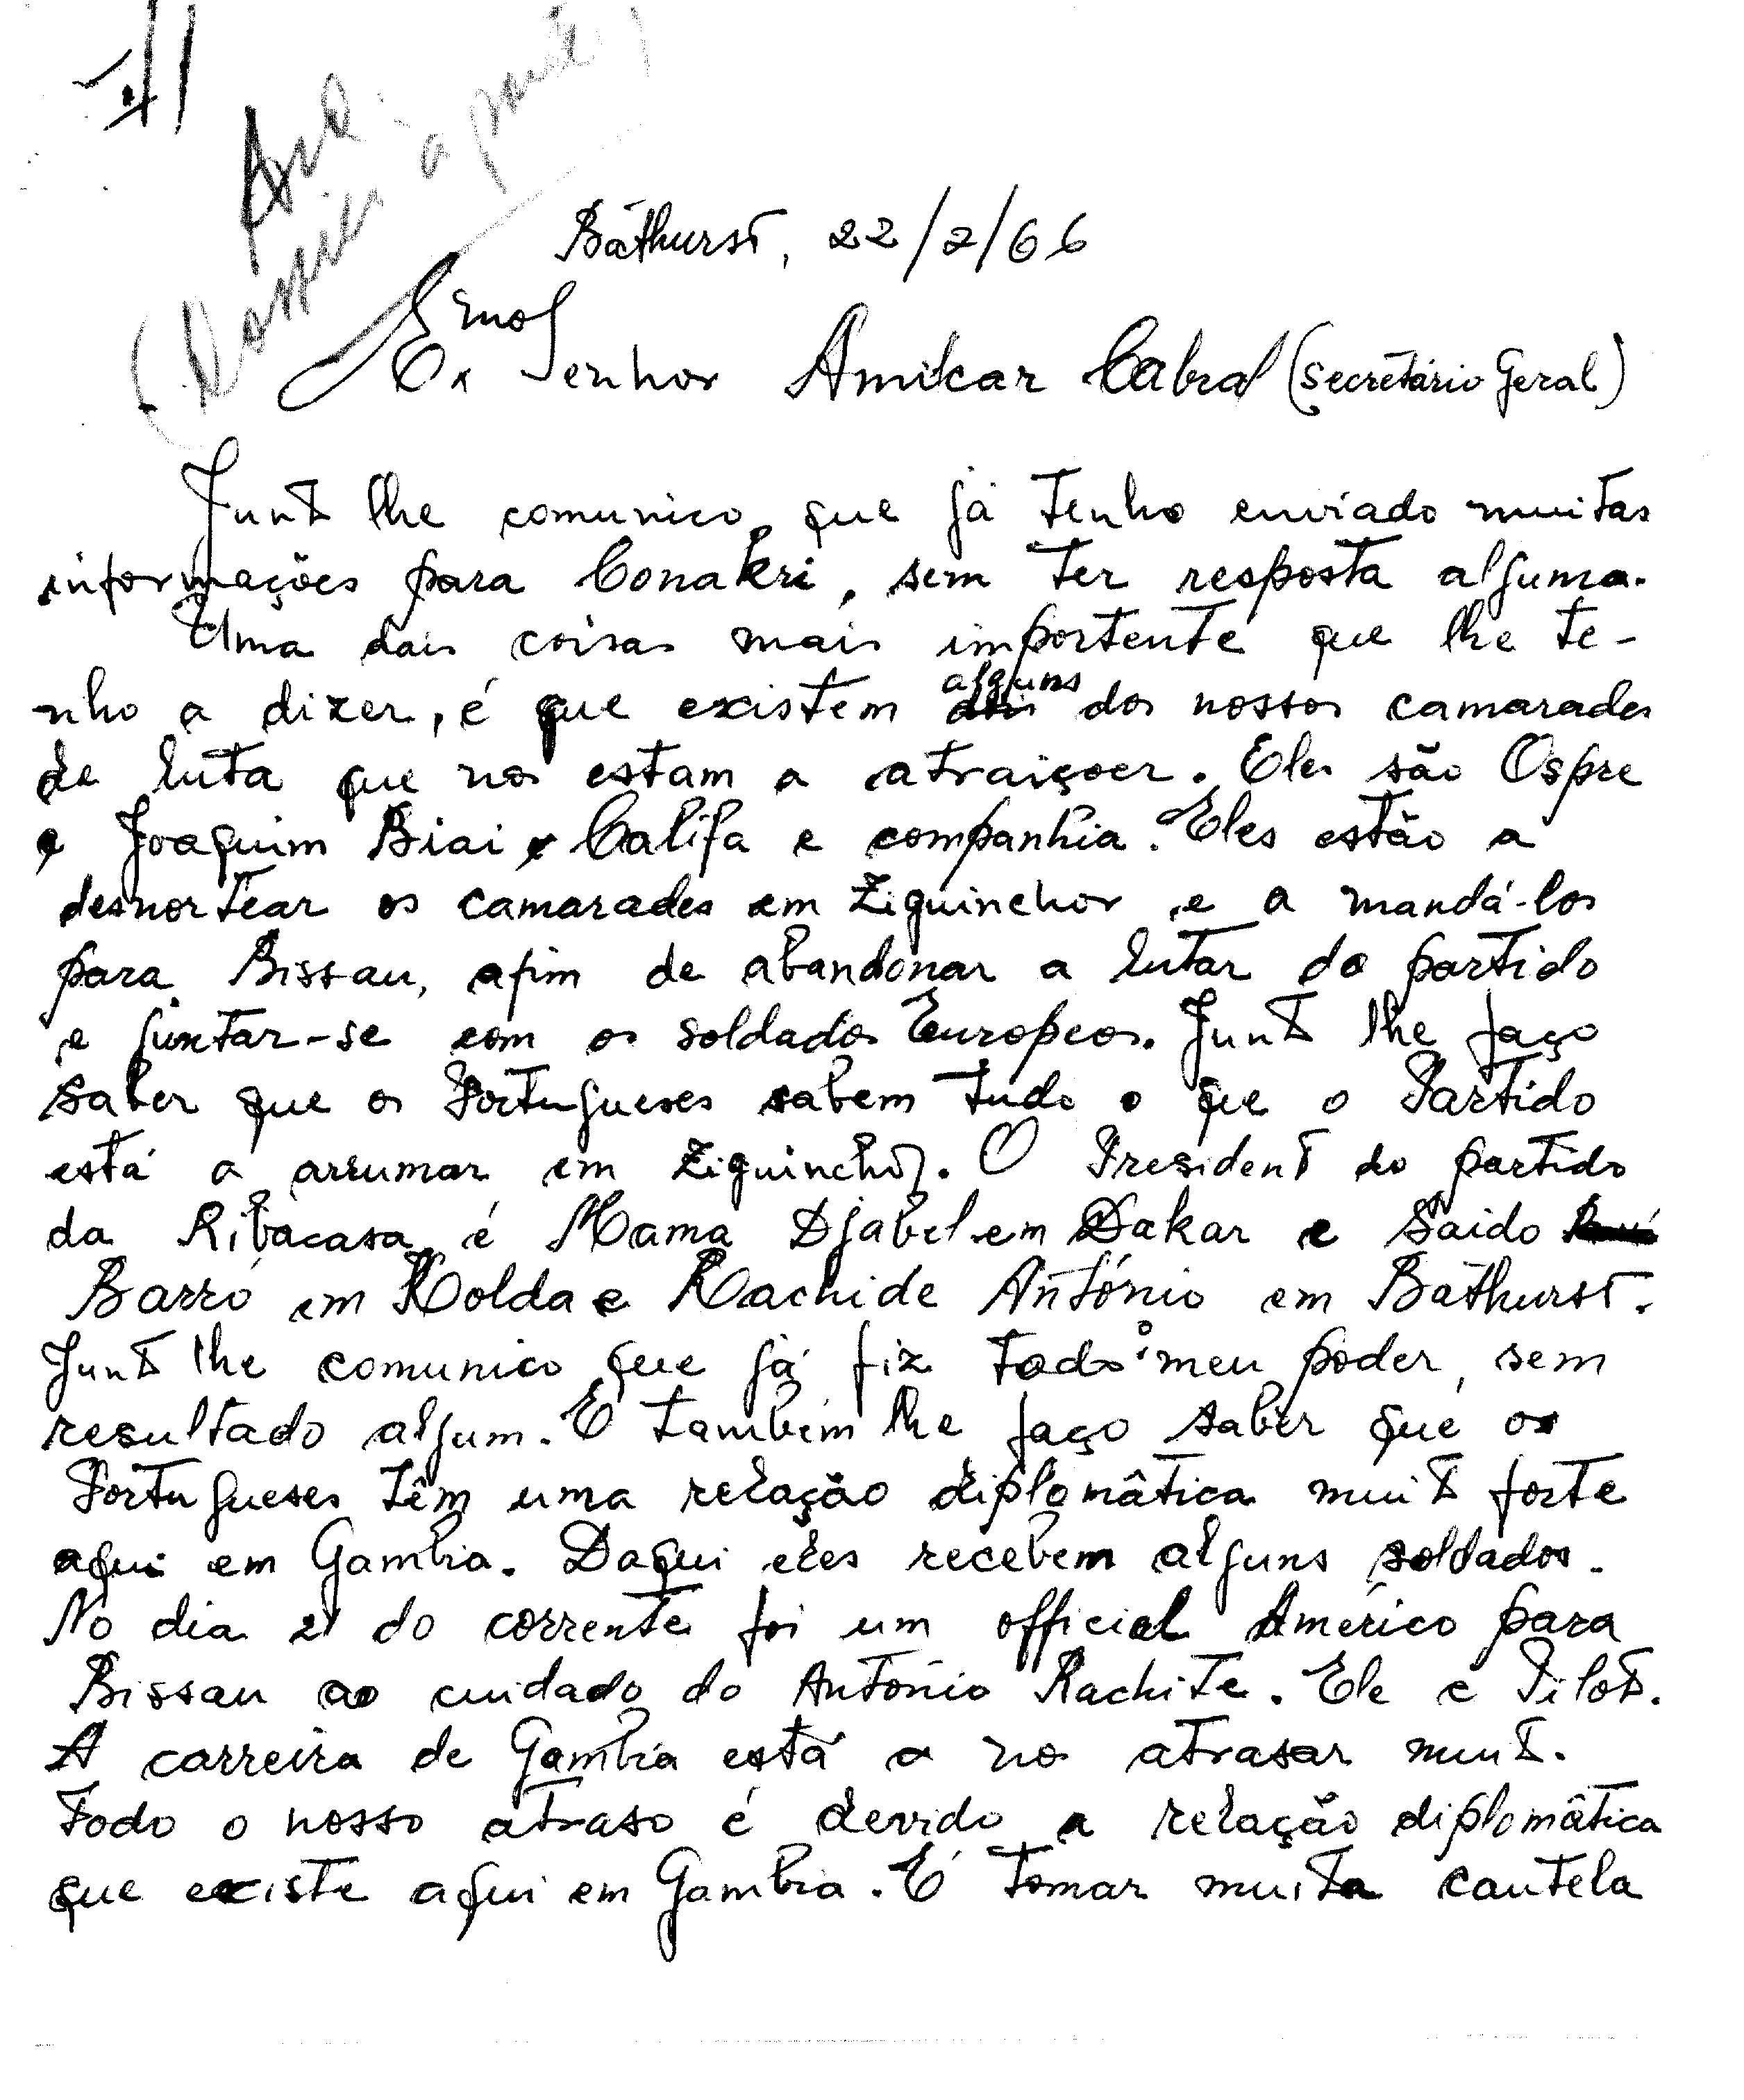 Arq.
(Dossier à parte)
Báthurst, 22/2/66
Exmo Senhor Amilcar Cabral (Secretário Geral)
Junto lhe comunico, que já tenho enviado muitas
informações para Conakri, sem ter resposta alguma.
Uma dais coisas mais importente que lhe te-
nho a dizer, é que existem alguns dos nossos camarades
de luta que nos estam a atraiçoer. Eles são Ospre
e Joaquim Biai e Califa e companhia. Eles estão a
desnortear os camarades em Ziguinchor, e a mandá-los
para Bissau, afim de abandonar a lutar do partido
e juntar-se com os soldados Europeos. Junto lhe faço
saber que os Portugueses sabem tudo o que o Partido
está a arrumar em Ziguinchor. O President do partido
da Ribacasa é Mama Djabel em Dakar e Saido
Barró em Kolda e Rachide António em Bathurst.
Junto lhe comunico que já fiz todo o meu poder, sem
resultado algum. E também lhe faço saber que os
Portugueses têm uma relação diplomâtica muito forte
aqui em Gambia. Daqui eles recebem alguns soldados.
No dia 21 do corrente foi um official Américo para
Bissau ao cuidado do António Rachite. Ele é Piloto.
A carreira de Gambia está a nos atrasar muito.
Todo o nosso atraso é devido a relação diplomâtica
que existe aqui em Gambia. É tomar muita cautela